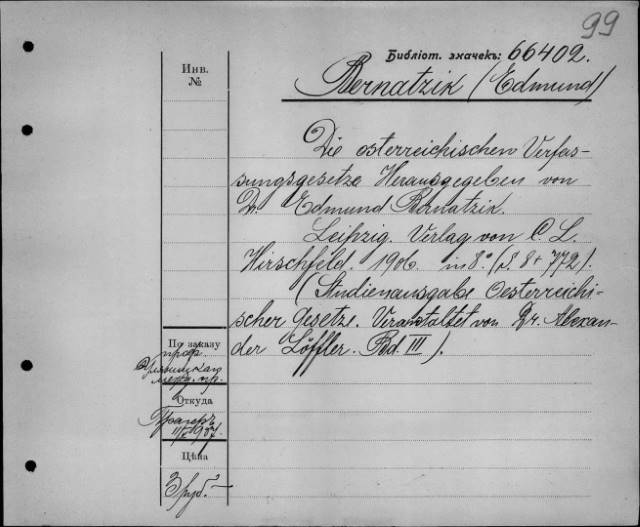 99
Библіот. значекъ: 66402.
Инв.
№
Bernatzik (Edmund)
Die österreichischen Verfas-
sungsgesetze Herausgegeben von
Dr. Edmund Bernatzik.
Leipzig. Verlag von C. L.
Hirschfeld. 1906. in 8° (S. 8 + 772).
(Studienausgabe Oesterreichi-
scher Gesetze. Veranstaltet von Dr. Alexan-
der Löffler. Bd. III).
По заказу
проф.
Откуда
1907.
Цѣна
3 руб. –